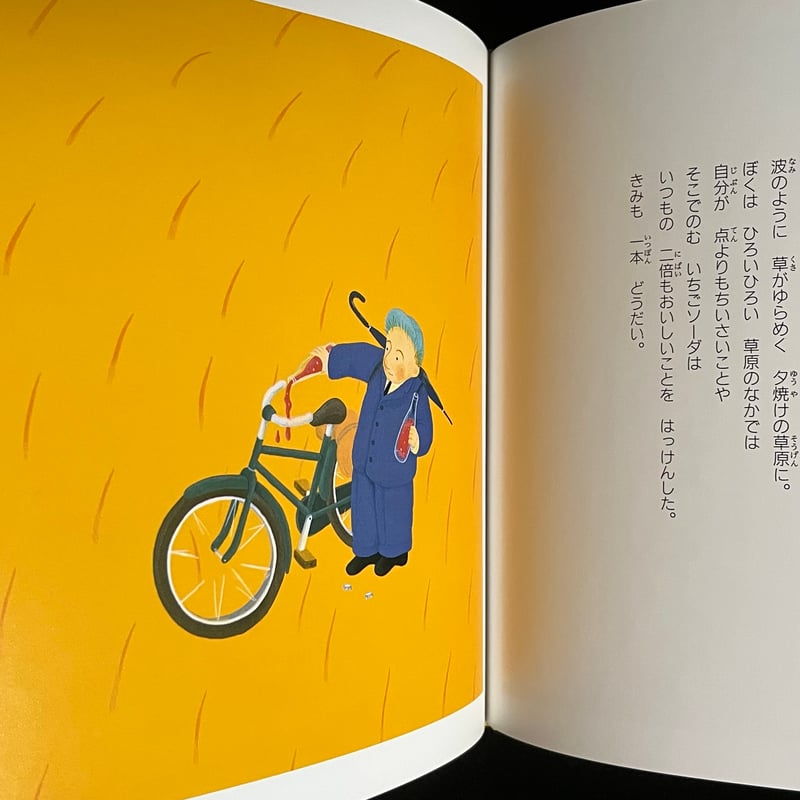 波のように　草がゆらめく　夕焼けの草原に。
ぼくは　ひろいひろい　草原のなかでは
自分が　点よりもちいさいことや
そこでのむ　いちごソーダは
いつもの　二倍もおいしいことを　はっけんした。
きみも　一本　どうだい。